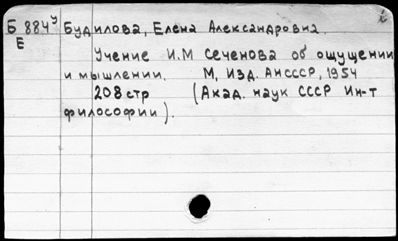 Б 884у Будилова, Елена Александровна.
Е
Учение И.М Сеченова об ощущении
и мышлении. М, Изд. АНСССР, 1954
208 стр (Акад. наук СССР Ин-т
философии).